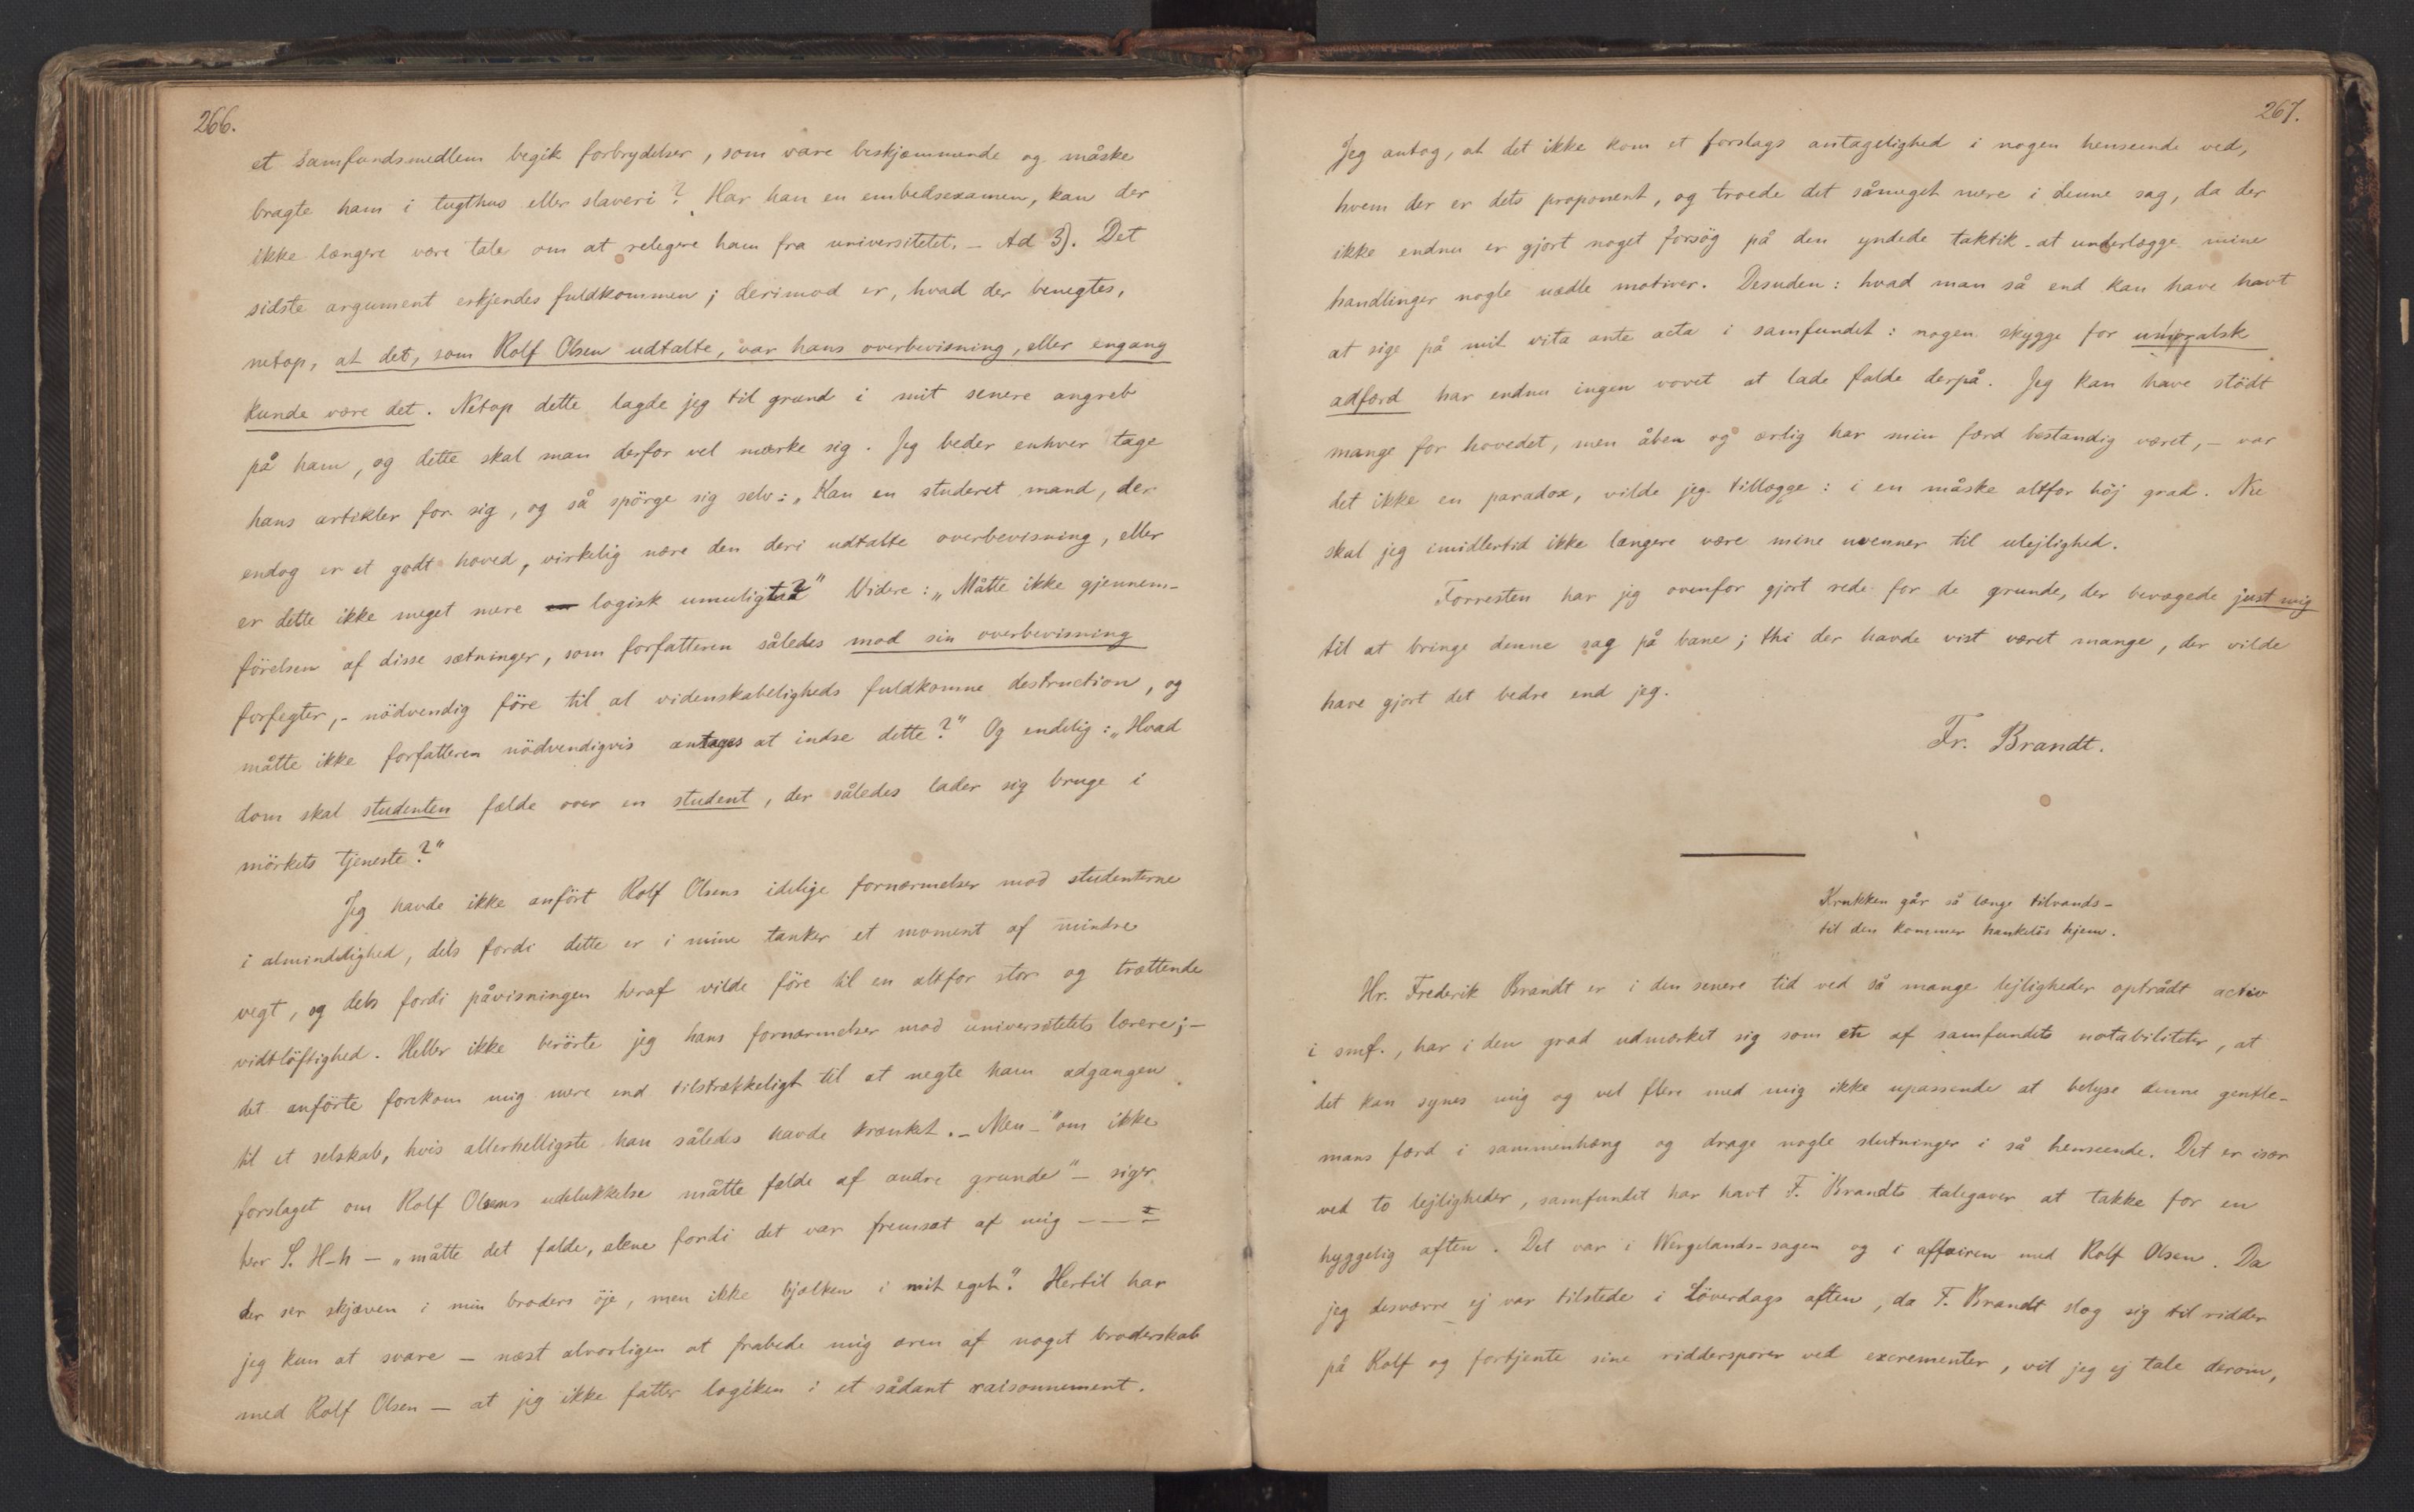 266.
et samfundsmedlem begik forbrydelser, som vare beskjæmmende og måske
bragte ham i tugthus eller slaveri? Har han en embedsexamen, kan der
ikke længere være tale om at relegere ham fra universitetet. — Ad 3). Det
sidste argument erkjendes fuldkommen; derimod er, hvad der benegtes,
netop, at det, som Rolf Olsen udtalte, var hans overbevisning, eller engang
kunde være det. Netop dette lagde jeg til grund i mit senere angreb
på ham, og dette skal man derfor vel mærke sig. Jeg beder enhver tage
hans artikler for sig, og så spörge sig selv: „Kan en studeret mand, der
endog er et godt hoved, virkelig nære den deri udtalte overbevisning, eller
er dette ikke meget mere logisk umuligt?" Videre: „Måtte ikke gjennem-
förelsen af disse sætninger, som forfatteren således mod sin overbevisning
forfegter, - nödvendig före til al videnskabeligheds fuldkomne destruction, og
måtte ikke forfatteren nödvendigvis antages at indse dette?" Og endelig: „Hvad
dom skal studenten fælde over en student, der således lader sig bruge i
mörkets tjeneste?"
Jeg havde ikke anfört Rolf Olsens idelige fornærmelser mod studenterne
i almindelighed, dels fordi dette er i mine tanker et moment af mindre
vegt, og dels fordi påvisningen heraf vilde före til en altfor stor og trættende
vidtlöftighed. Heller ikke berörte jeg hans fornærmelser mod universitetets lærere; —
det anförte forekom mig mere end tilstrækkeligt til at negte ham adgangen
til et selskab, hvis allerhelligste han således havde krænket. — Men — "om ikke
forslaget om Rolf Olsens udelukkelse måtte falde af andre grunde" — siger
herr S. H-h — „måtte det falde, alene fordi det var fremsat af mig — — —
der ser skjæven i min broders öje, men ikke bjælken i mit eget". Hertil har
jeg kun at svare — næst alvorligen at frabede mig æren af noget broderskab
med Rolf Olsen — at jeg ikke fatter logiken i et sådant raisonnement.
267.
Jeg antog, at det ikke kom et forslags antagelighed i nogen henseende ved,
hvem der er dets proponent, og troede det såmeget mere i denne sag, da der
ikke endnu er gjort noget forsög på den yndede taktik at underlægge mine
handlinger nogle uædle motiver. Desuden: hvad man så end kan have havt
at sige på mit vita ante acta i samfundet: nogen skygge for umoralsk
adfærd har endnu ingen vovet at lade falde derpå. Jeg kan have stödt
mange for hovedet, men åben og ærlig har min færd bestandig været, — var
det ikke en paradox, vilde jeg tillægge: i en måske altfor höj grad. Nu
skal jeg imidlertid ikke længere være mine uvenner til ulejlighed.
Forresten har jeg ovenfor gjort rede for de grunde, der bevægede just mig
til at bringe denne sag på bane; thi der havde vist været mange, der vilde
have gjort det bedre end jeg.
Fr. Brandt.
Krukken går så længe tilvands -
til den kommer hankelös hjem.
Hr. Frederik Brandt er i den senere tid ved så mange lejligheder optrådt activ
i smf., har i den grad udmærket sig som en af samfundets notabiliteter, at
det kan synes mig og vel flere med mig ikke upassende at belyse denne gentle-
mans færd i sammenhæng og drage nogle slutninger i så henseende. Det er især
ved to lejligheder, samfundet har havt F. Brandts talegaver at takke for en
hyggelig aften. Det var i Wergelands-sagen og i affairen med Rolf Olsen. Da
jeg desværre ej var tilstede i Löverdags aften, da F. Brandt slog sig til ridder
på Rolf og fortjente sine riddersporer ved excrementer, vil jeg ej tale derom,